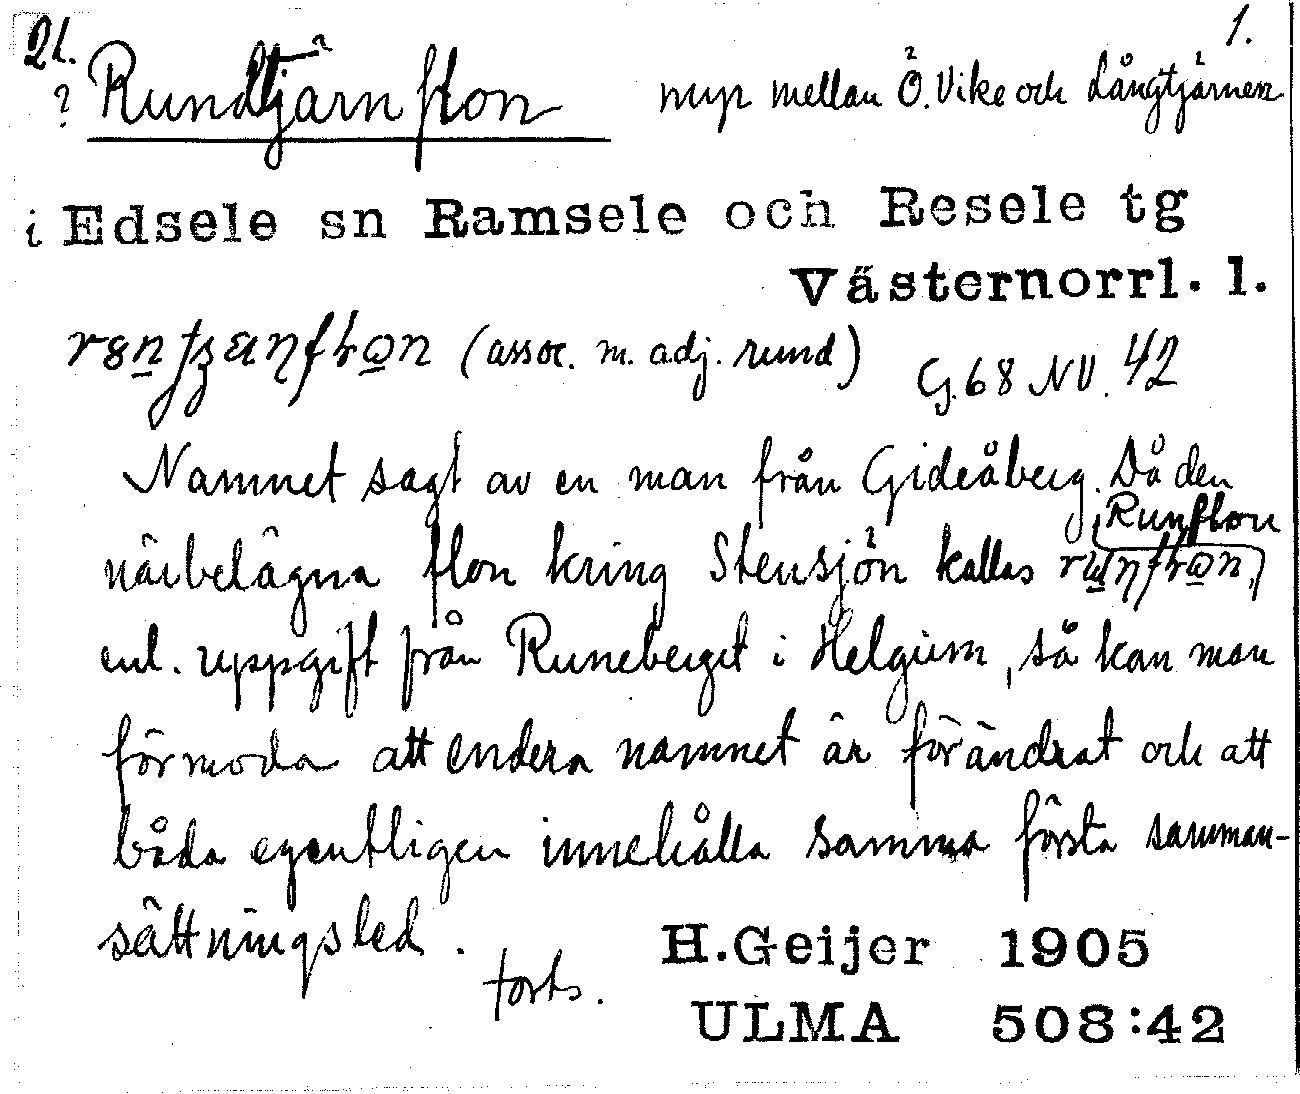 21. 1.
? Rundtjärnflon myr mellan Ö. Vike och Långtjärnen
i Edsele sn Ramsele och Resele tg
Västernorrl. l.
(assoc. m. adj. rund) G. 68 NV. 42
Namnet sagt av en man från Gideåberg. Då den
Runflon
närbelägna flon kring Stensjön kallas
enl. uppgift från Runeberget i Helgum, så kan man
förmoda att endera namnet är förändrat och att
båda egentligen innehålla samma första samman-
sättningsled. H. Geijer 1905
forts.
ULMA 508:42